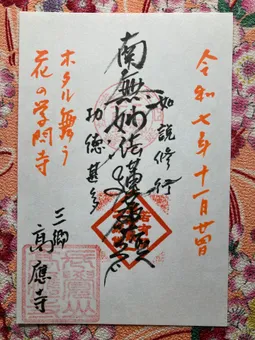 令和七年十一月廿四
如説修行
南無妙法蓮華経
功徳甚多
ホタル舞う
花の学問寺
三郷
高應寺